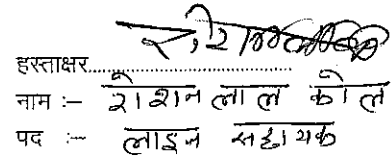 हस्ताक्षर..................
नाम :- रोशन लाल कोल
पद :- लाइन सहायक